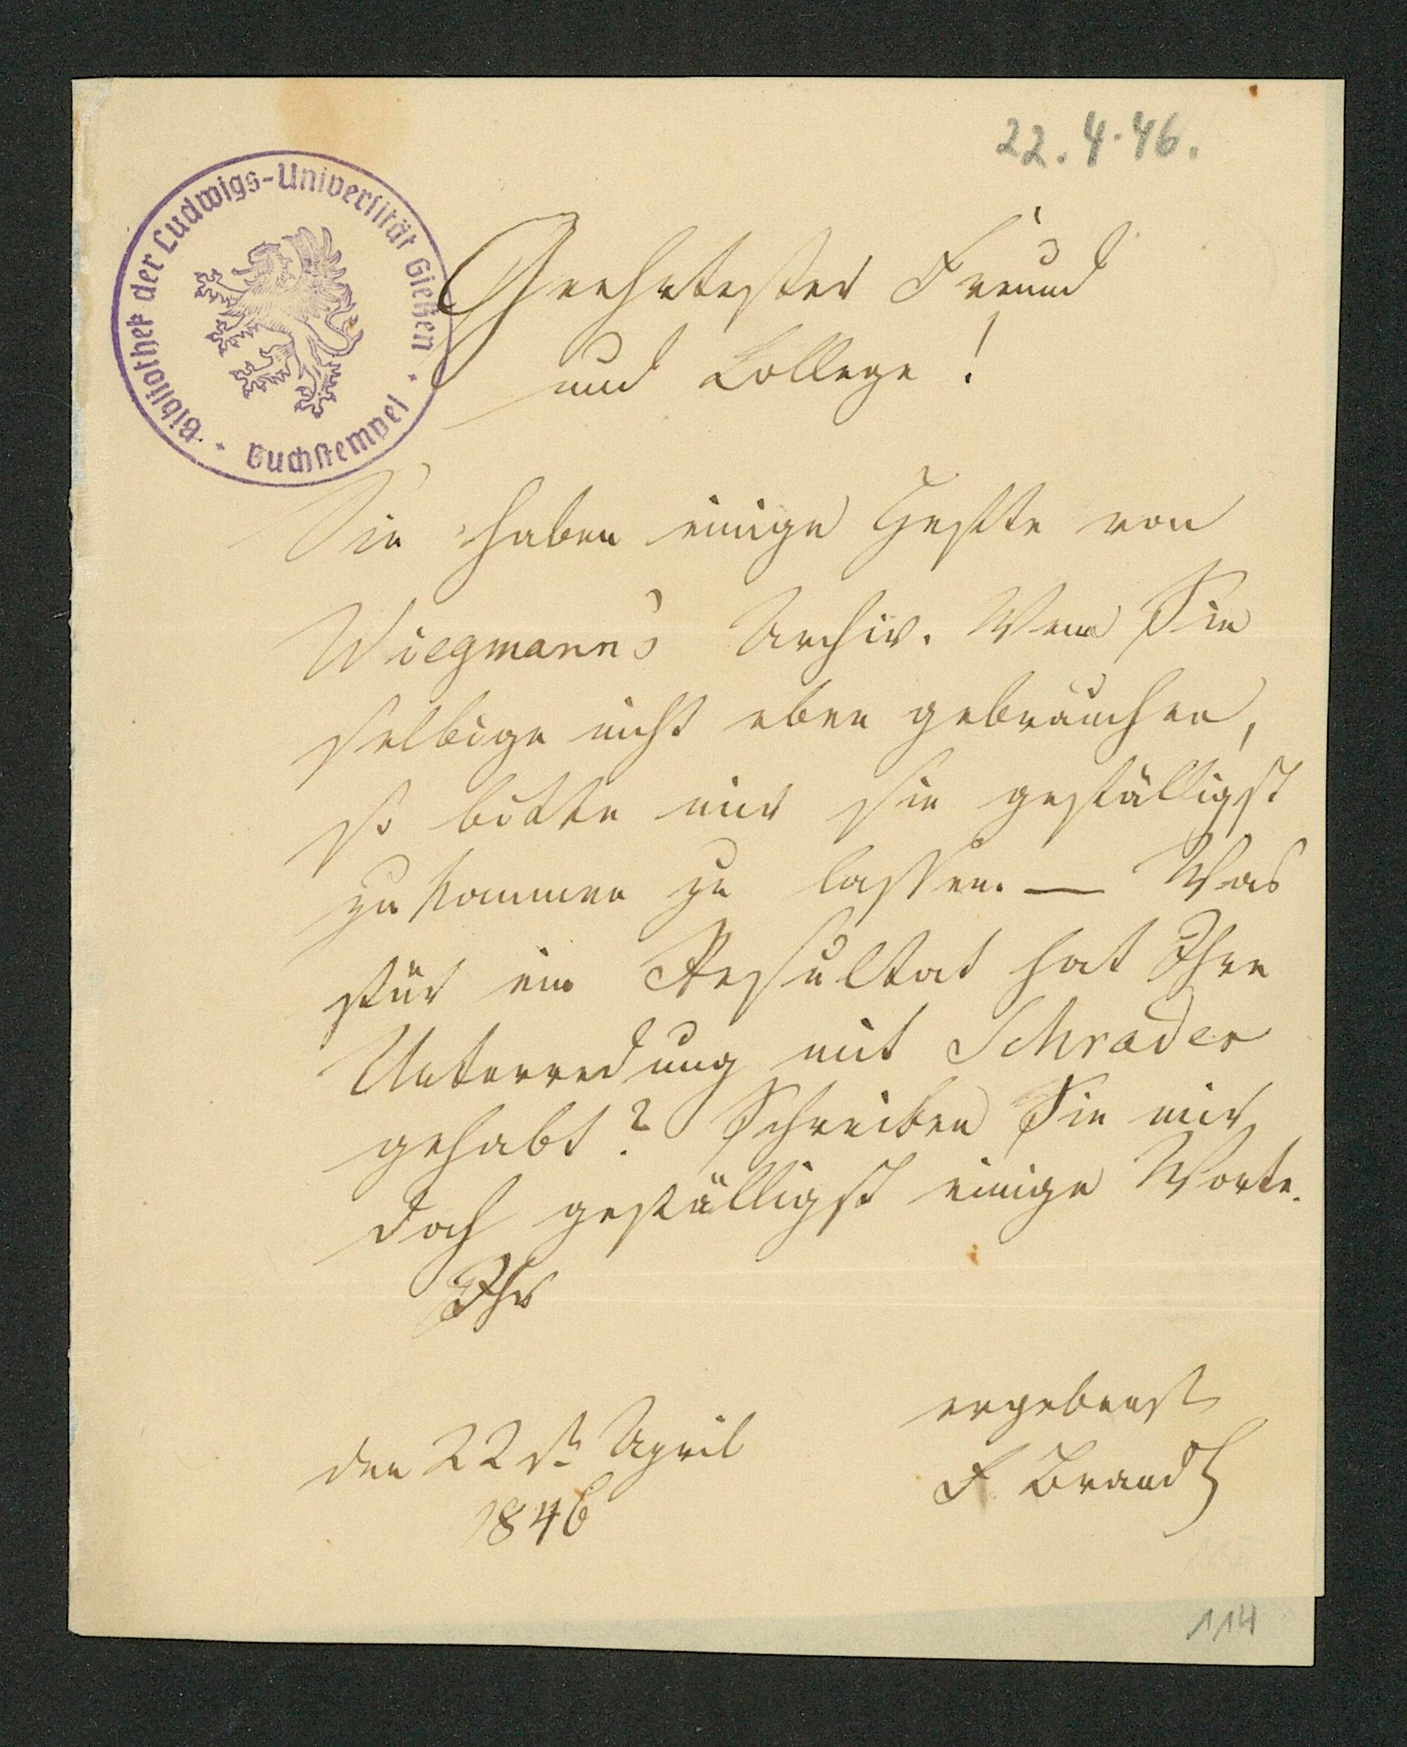 22. 4. 46.
Bibliothek der Ludwigs-Universität Gießen
Buchstempel
Geehrtester Freund
und College!
Sie haben einige Hefte von
Wiegmann's Archiv. Wenn Sie
selbige nicht eben gebrauchen,
so bitte mir sie gefälligst
zukommen zu lassen. — Was
für ein Resultat hat Ihre
Unterredung mit Schrader
gehabt? Schreiben Sie mir
doch gefälligst einige Worte.
Ihr
ergebenst
F Brandt
den 22st April
1846
114